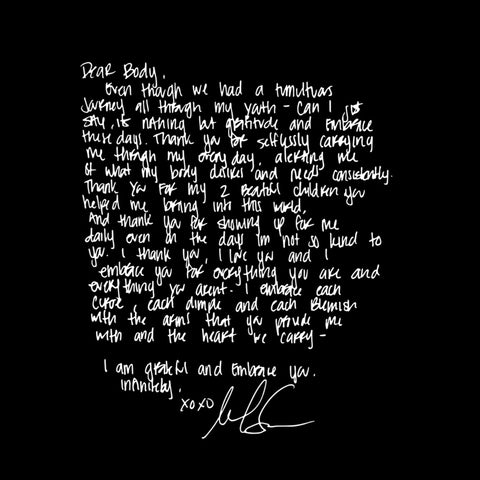 Dear Body,
Even though we had a tumultuos
journey all through my youth - can I just
say, its nothing but gratitude and embrace
these days. Thank you for selflessly carrying
me through my every day, alerting me
of what my body desires and needs consistently.
Thank you for my 2 beautiful children you
helped me bring into this world.
And thank you for showing up for me
daily even on the days im not so kind to
you. I thank you, I love you and I
embrace you for everything you are and
everything you arent. I embrace each
curve, each dimple and each Blemish
with the arms that you provide me
with and the heart we carry -
I am grateful and embrace you.
infinitely.
xoxo